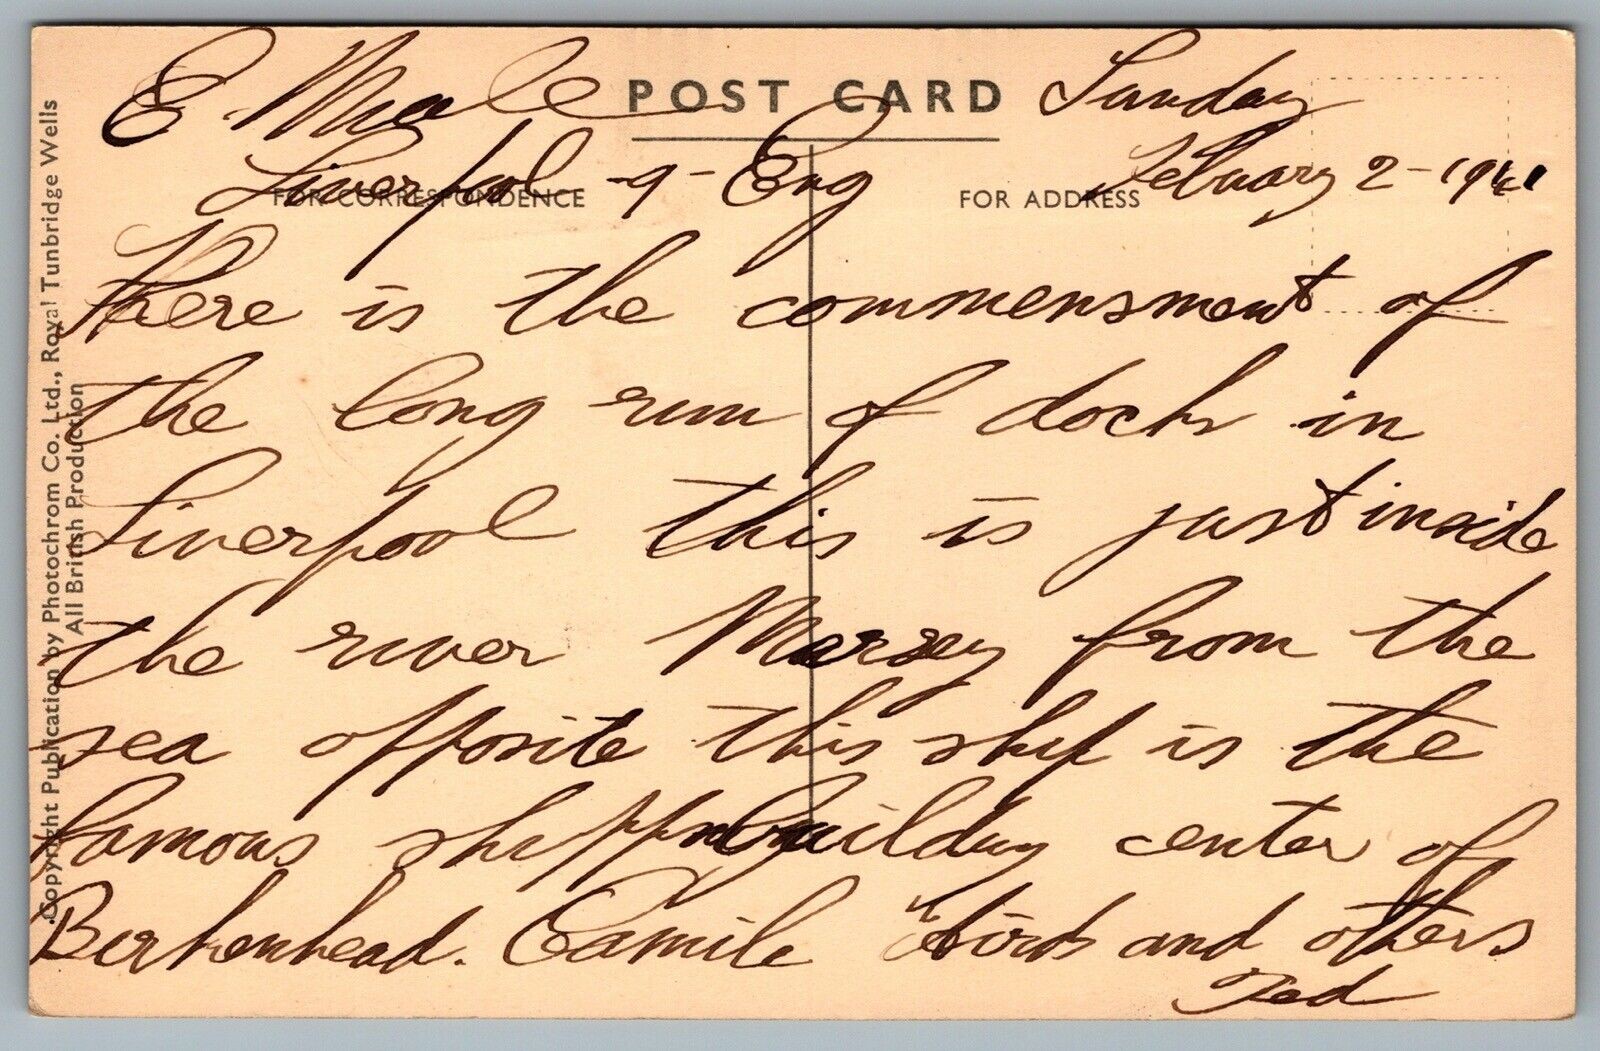 E. Male POST CARD Sunday
Liverpool -9- Eng February 2-1941
FOR CORRESPONDENCE FOR ADDRESS
There is the commensment of
the long run of dock in
Liverpool this is just inside
the river Mersey from the
sea opposite this ship is the
famous shipping building center of
Berkenhead. Camile and others
Ted
Copyright Publication by Photochrom Co. Ltd., Royal Tunbridge Wells
All British Production